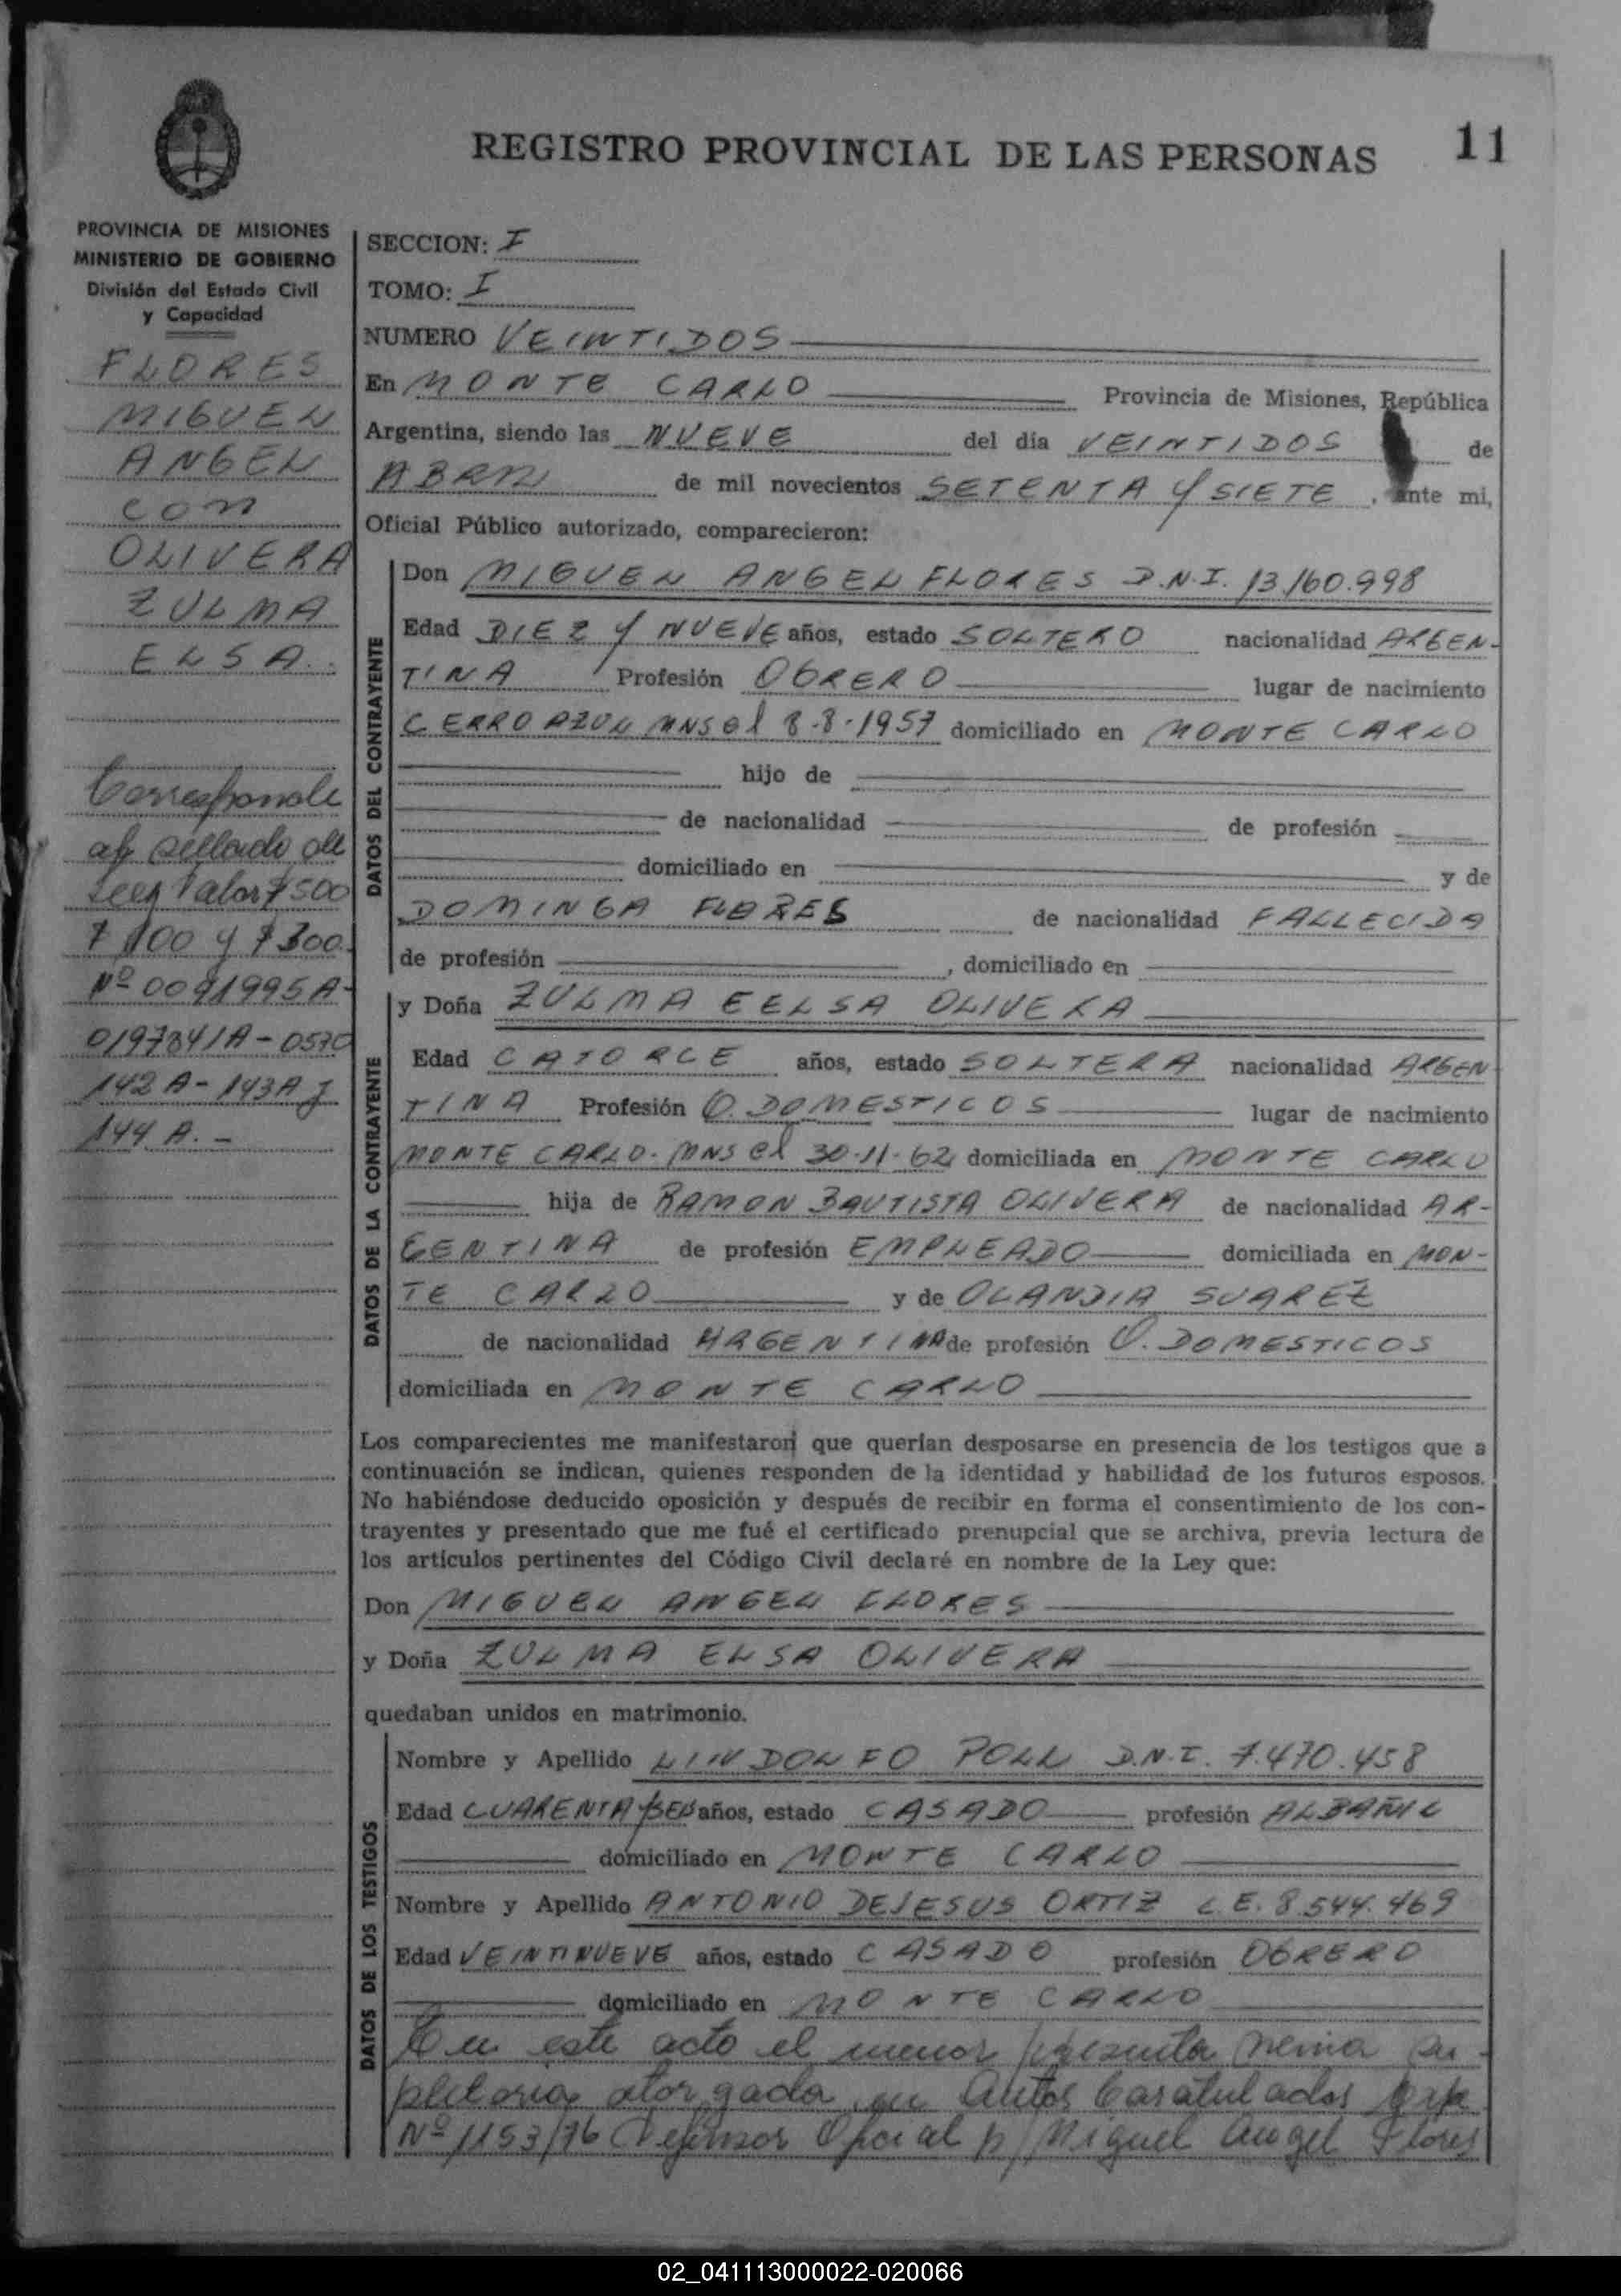 REGISTRO PROVINCIAL DE LAS PERSONAS 11
PROVINCIA DE MISIONES
MINISTERIO DE GOBIERNO
División del Estado Civil
y Capacidad
FLORES
MIGUEL
ANGEL
con
OLIVERA
ZULMA
ELSA.
Corresponde
sellado de
Ley Valor $ 500
$ 100 y $ 300.
Nº 0091995A-
0197841A - 0570
142 A - 143A y
144 A. -
SECCION: I
TOMO: I
NUMERO VEINTIDOS
En MONTE CARLO Provincia de Misiones, República
Argentina, siendo las NUEVE del día VEINTIDOS de
ABRIL de mil novecientos SETENTA Y SIETE, ante mi,
Oficial Público autorizado, comparecieron:
DATOS DEL CONTRAYENTE
Don MIGUEL ANGEL FLORES D.N.I. 13.160.998
Edad DIEZ Y NUEVE años, estado SOLTERO nacionalidad ARGEN-
TINA Profesión OBRERO lugar de nacimiento
CERRO AZUL MNS el 8-8-1957 domiciliado en MONTE CARLO
hijo de
de nacionalidad de profesión
domiciliado en y de
DOMINGA FLORES de nacionalidad FALLECIDA
de profesión , domiciliado en
DATOS DE LA CONTRAYENTE
y Doña ZULMA EELSA OLIVERA
Edad CATORCE años, estado SOLTERA nacionalidad ARGEN
TINA Profesión Q. DOMESTICOS lugar de nacimiento
MONTE CARLO. MNS el 30-11-62 domiciliada en MONTE CARLO
hija de RAMON BAUTISTA OLIVERA de nacionalidad AR-
GENTINA de profesión EMPLEADO domiciliada en MON-
TE CARLO y de OLANDIA SUAREZ
de nacionalidad ARGENTINA de profesión Q. DOMESTICOS
domiciliada en MONTE CARLO
Los comparecientes me manifestaron que querían desposarse en presencia de los testigos que a
continuación se indican, quienes responden de la identidad y habilidad de los futuros esposos.
No habiéndose deducido oposición y después de recibir en forma el consentimiento de los con-
trayentes y presentado que me fué el certificado prenupcial que se archiva, previa lectura de
los artículos pertinentes del Código Civil declaré en nombre de la Ley que:
Don MIGUEL ANGEL FLORES
y Doña ZULMA ELSA OLIVERA
quedaban unidos en matrimonio.
DATOS DE LOS TESTIGOS
Nombre y Apellido LINDOLFO POLL D.N.I. 7.470.458
Edad CUARENTA y SEIS años, estado CASADO profesión ALBAÑIL
domiciliado en MONTE CARLO
Nombre y Apellido ANTONIO DEJESUS ORTIZ L.E. 8.544.469
Edad VEINTINUEVE años, estado CASADO profesión OBRERO
domiciliado en MONTE CARLO
En este acto el menor presenta Venia su-
pletoria otorgada en Autos Caratulados Exp
Nº 1153/76 Defensor Oficial p/ Miguel Angel Flores
02_041113000022-020066